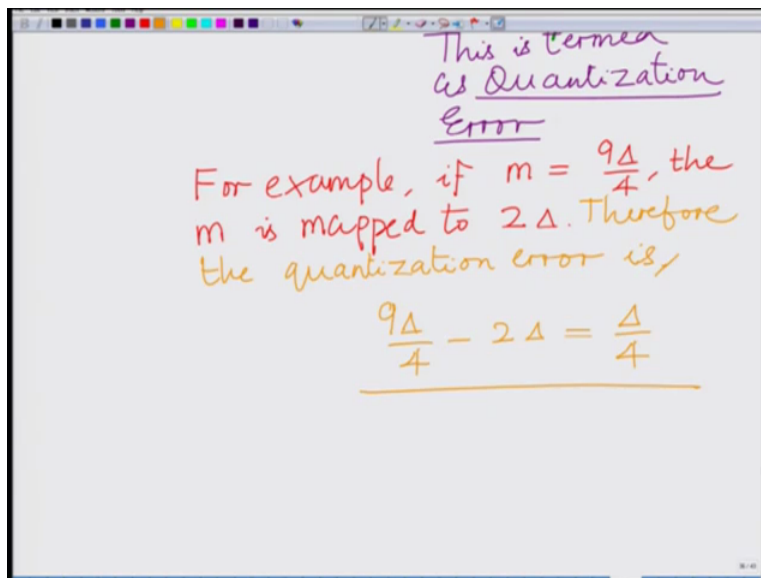 This is termed
as Quantization
Error
For example, if m = 9Δ/4, the
m is mapped to 2Δ. Therefore
the quantization error is,
9Δ/4 - 2Δ = Δ/4